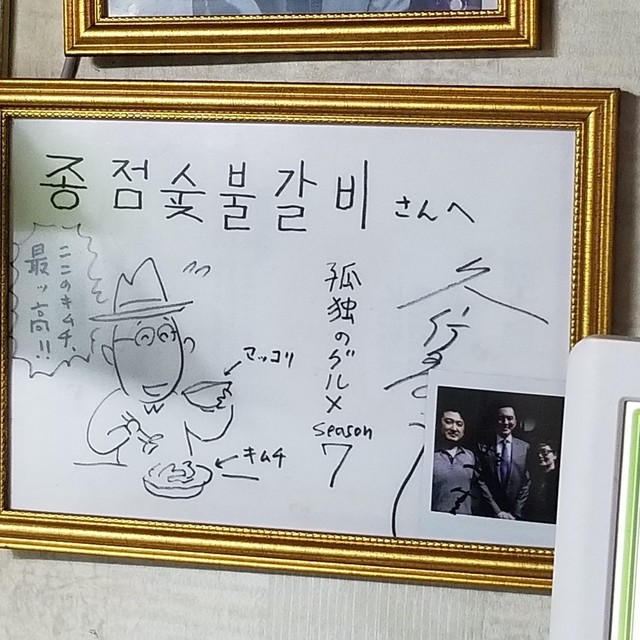 종점숯불갈비 さんへ
ここのキムチ、
最ッ高!!
マッコリ
キムチ
孤独のグルメ
season
7
久住